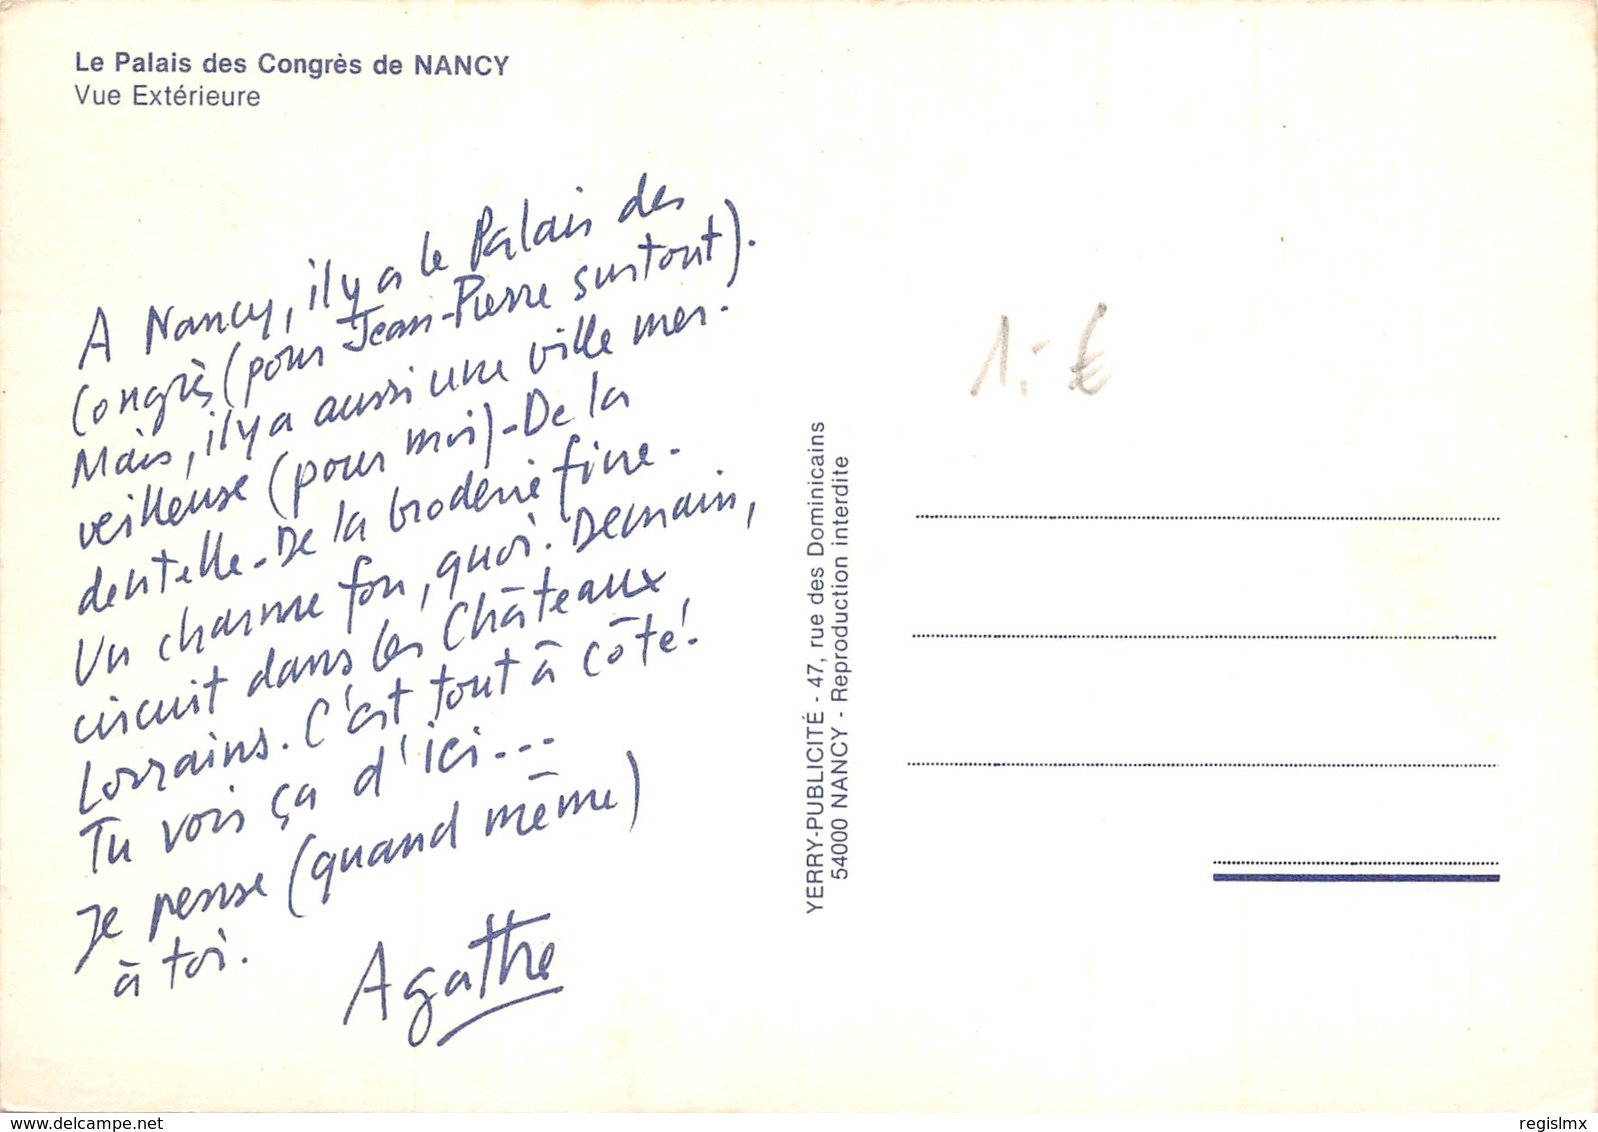 Le Palais des Congrès de NANCY
Vue Extérieure
A Nancy, il y a le Palais des
Congrès (pour Jean-Pierre surtout).
Mais, il y a aussi une ville mer-
veilleuse (pour moi) - De la
dentelle - De la broderie fine -
Un charme fou, quoi. Demain,
circuit dans les Châteaux
Lorrains. C'est tout à côté.
Tu vois ça d'ici...
Je pense (quand même)
à toi.
Agathe
YERRY-PUBLICITÉ - 47, rue des Dominicains
54000 NANCY - Reproduction interdite
1,- €
www.delcampe.net
regislmx